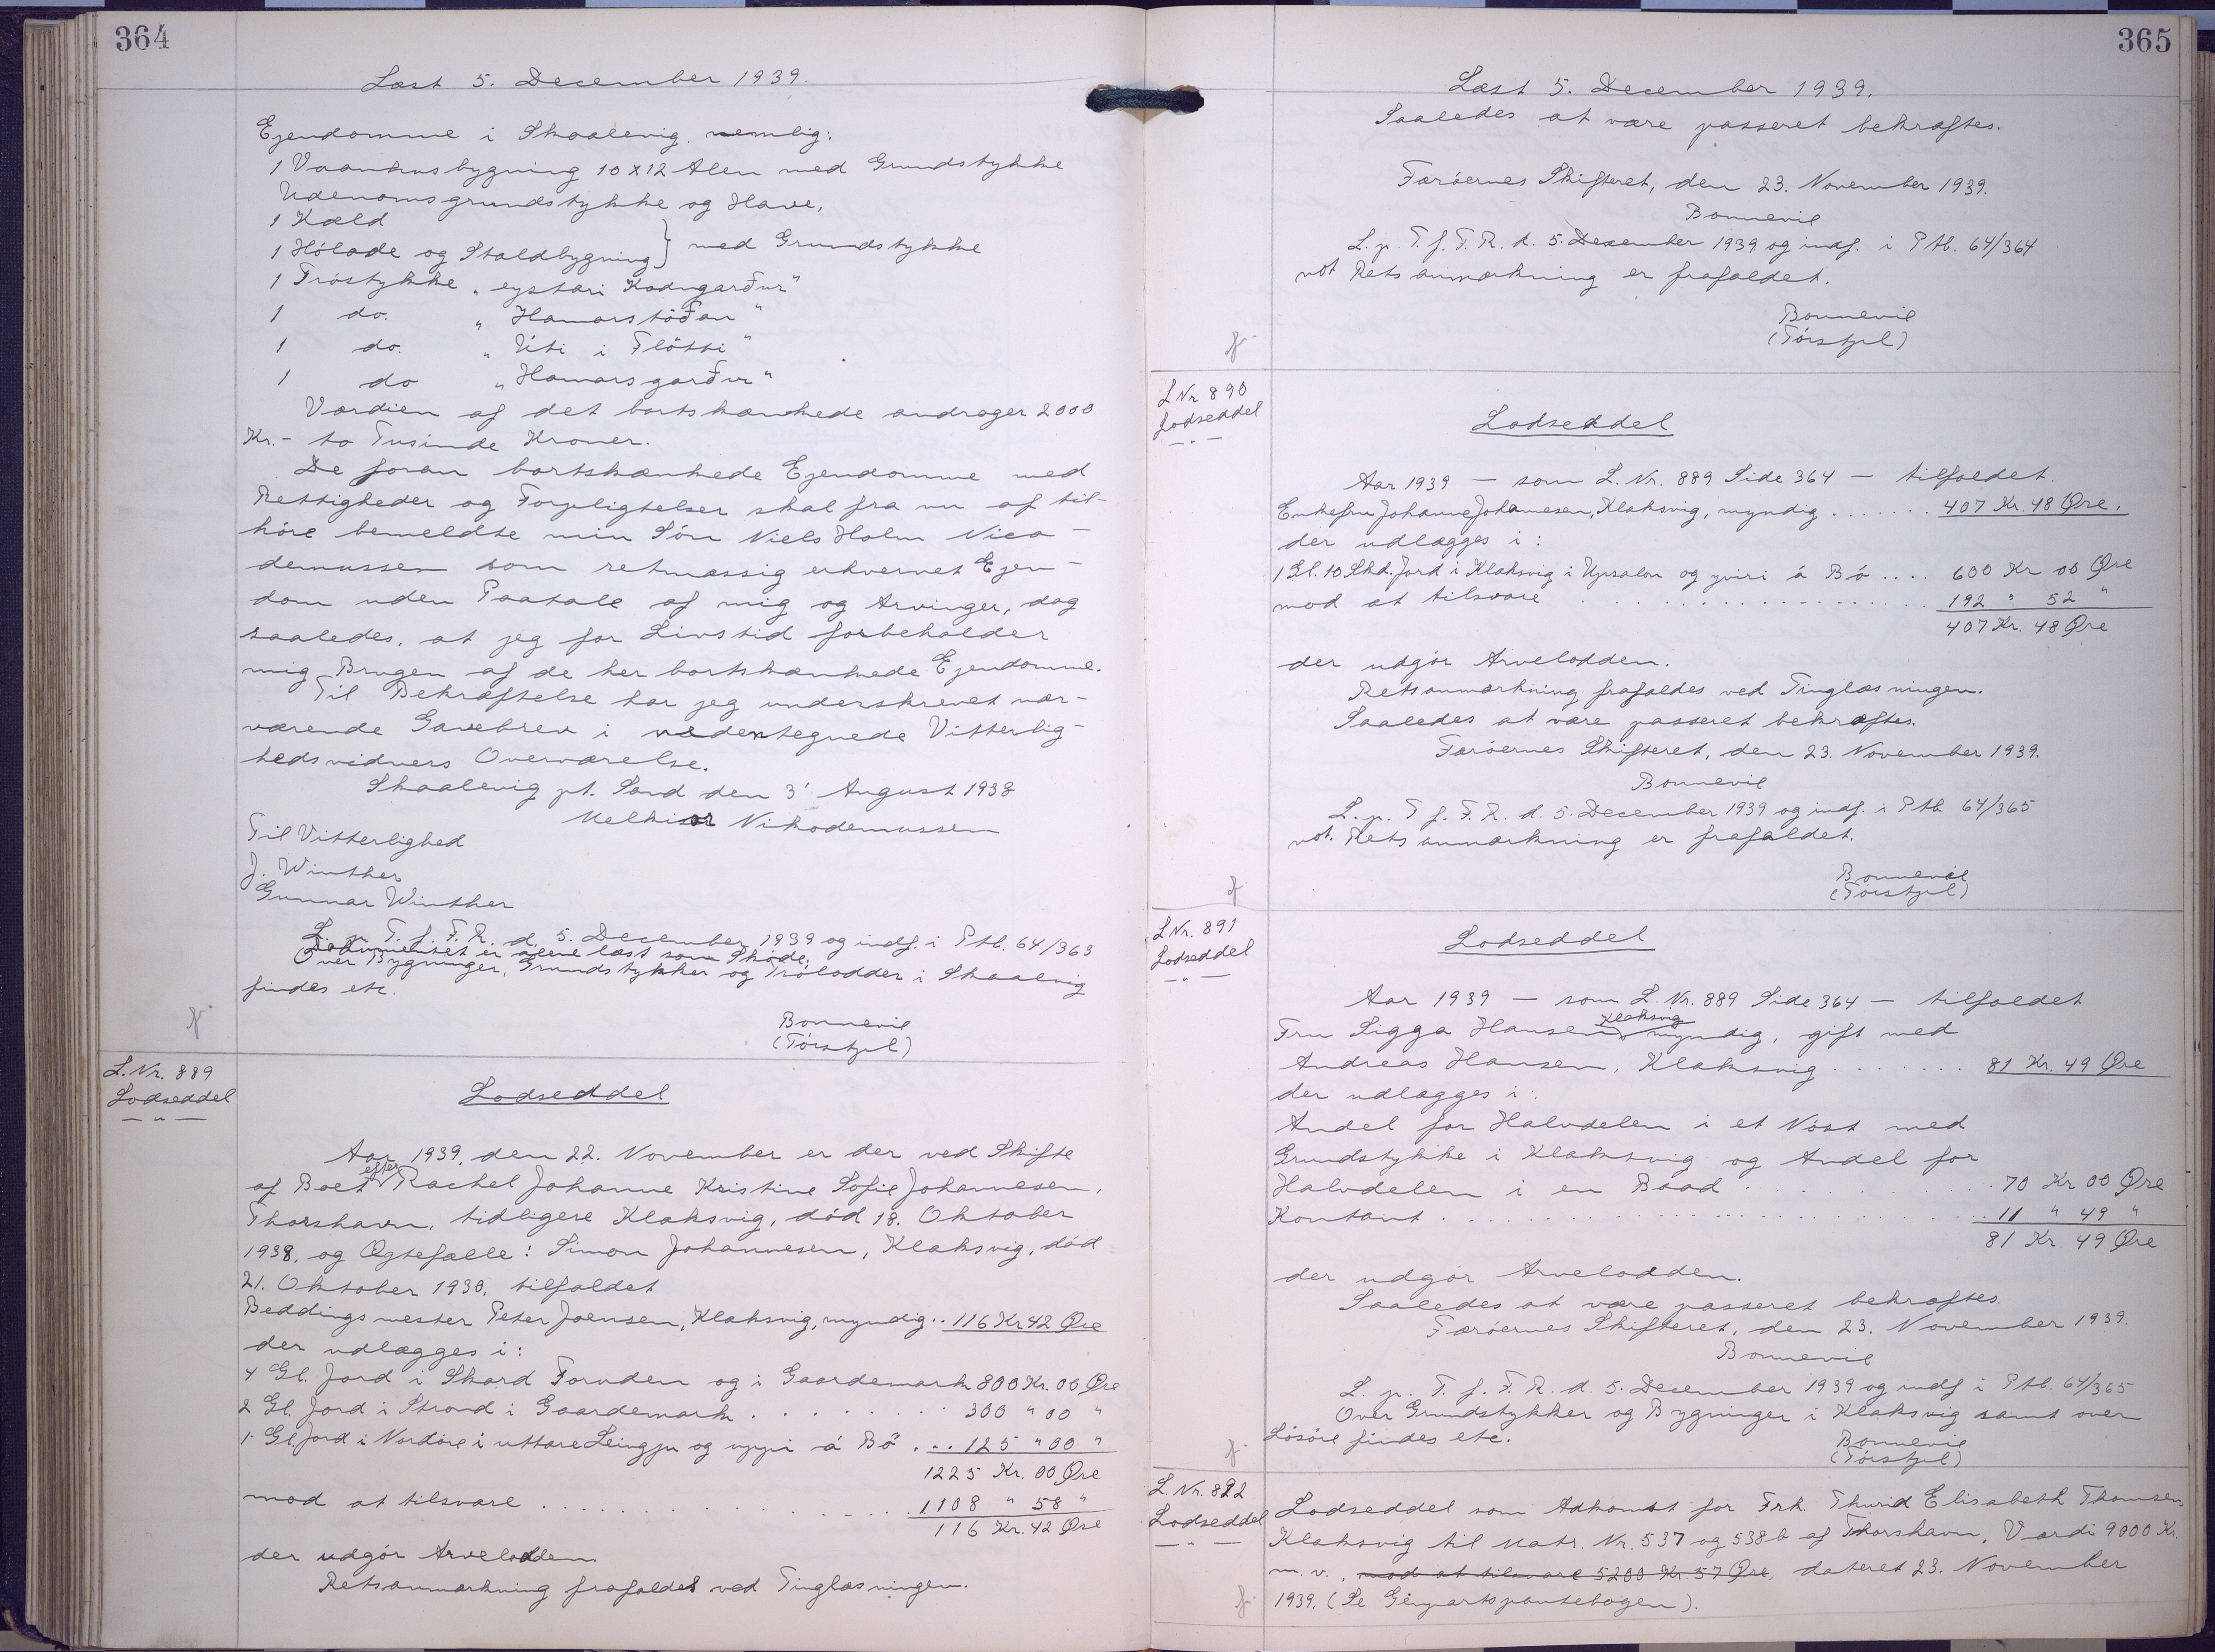 364
Læst 5. December 1939.
Ejendomme i Skaalevig. nemlig:
1 Vaanhusbygning 10 x 12 Alen med Grundstykke
Udenomsgrundstykke og Have,
1 Kæld
1 Hölade og Staldbygning } med Grundstykke
1 Tröstykke „eystari Kodngarður"
1 do. „Hamarstöðan"
1 do. „Úti i Flötti"
1 do „Hamarsgarður"
Værdien af det bortskænkede andrager 2000
Kr.- to Tusinde Kroner.
De foran bortskænkede Ejendomme med
Rettigheder og Forpligtelser skal fra nu af til-
höre bemeldte min Sön Niels Holm Nico-
demussen som retmæssig erhvervet Ejen-
dom uden Paatale af mig og Arvinger, dog
saaledes, at jeg for Livstid forbeholder
mig Brugen af de her bortskænkede Ejendomme.
Til Bekræftelse har jeg underskrevet nær-
værende Gavebrev i nedentegnede Vitterlig-
hedsvidners Overværelse.
Skaalevig pt. Sand den 3' August 1938
Melkior Nikodemussen
Til Vitterlighed
J. Winther
Gunnar Winther
L. p. T. f. F. R. d. 5. December 1939 og indf. i Ptb. 64/363
Dokumentet er alene læst som Sköde.
Over Bygninger, Grundstykker og Trölodder i Skaalvig
findes etc.
Bonnevie
(Törstzel)
L. Nr. 889
Lodseddel
Lodseddel
Aar 1939, den 22. November er der ved Skifte
af Boet efter Rachel Johanne Kristine Sofie Johannesen,
Thorshavn, tidligere Klaksvig, död 18. Oktober
1938, og Ægtefælle: Simon Johannesen, Klaksvig, död
21. Oktober 1930, tilfaldet
Beddingsmester Peter Joensen, Klaksvig, myndig .. 116 Kr 42 Øre
der udlægges i:
4 Gl. Jord i Skard Foruden og i Gaardemark 800 Kr. 00 Øre
2 Gl. Jord i Strond i Gaardemark . . . . . . . . 300 " 00 "
1 Gl Jord i Nordöre i uttare Leingju og uppi á Bö . . . 125 " 00 "
1225 Kr. 00 Øre
mod at tilsvare . . . . . . . . . . . . 1108 " 58 "
116 Kr. 42 Øre
der udgör Arvelodden
Retsanmærkning frafaldes ved Tinglæsningen.
365
Læst 5. December 1939.
Saaledes at være passeret bekræftes.
Færöernes Skifteret, den 23. November 1939.
Bonnevie
L. p. T. f. F. R. d. 5. December 1939 og indf. i Ptb. 64/364
not Retsanmærkning er frafaldet.
Bonnevie
(Törstzel)
L Nr 890
Lodseddel
Lodseddel
Aar 1939 — som L. Nr. 889 Side 364 — tilfaldet.
Enkefru Johanne Johannesen, Klaksvig, myndig . . . . . . . 407 Kr. 48 Øre.
der udlægges i:
1 Gl. 10 Skd. Jord i Klaksvig i Upsalon og yviri á Bö . . . . 600 Kr 00 Øre
mod at tilsvare . . . . . . . . . . . . . . . 192 " 52 "
407 Kr. 48 Øre
der udgör Arvelodden.
Retsanmærkning frafaldes ved Tinglæsningen.
Saaledes at være passeret bekræftes.
Færöernes Skifteret, den 23. November 1939.
Bonnevie
L. p. T f. F. R. d. 5. December 1939 og indf. i Ptb. 64/365
not. Retsanmærkning er frafaldet.
Bonnevie
(Törstzel)
L Nr. 891
Lodseddel
Lodseddel
Aar 1939 — som L. Nr. 889 Side 364 — tilfaldet
Fru Sigga Hansen, Klaksvig myndig, gift med
Andreas Hansen, Klaksvig . . . . . . . 81 Kr. 49 Øre
der udlægges i:
Andel for Halvdelen i et Nöst med
Grundstykke i Klaksvig og Andel for
Halvdelen i en Baad . . . . . . . . . . . 70 Kr 00 Øre
Kontant . . . . . . . . . . . . . . . . . . . . . 11 " 49 "
81 Kr. 49 Øre
der udgör Arvelodden.
Saaledes at være passeret bekræftes.
Færöernes Skifteret, den 23. November 1939.
Bonnevie
L. p. T. f. F. R. d. 5. December 1939 og indf i Ptb. 64/365
Over Grundstykker og Bygninger i Klaksvig samt over
Lösöre findes etc.
Bonnevie
(Törstzel)
L. Nr. 892
Lodseddel
Lodseddel som Adkomst for Frk. Thurid Elisabeth Thomsen,
Klaksvig til Matr. Nr. 537 og 538 b af Thorshavn, Værdi 9000 Kr.
m. v., mod at tilsvare 5200 Kr. 57 Øre, dateret 23. November
1939. (Se Genpartspantebogen).